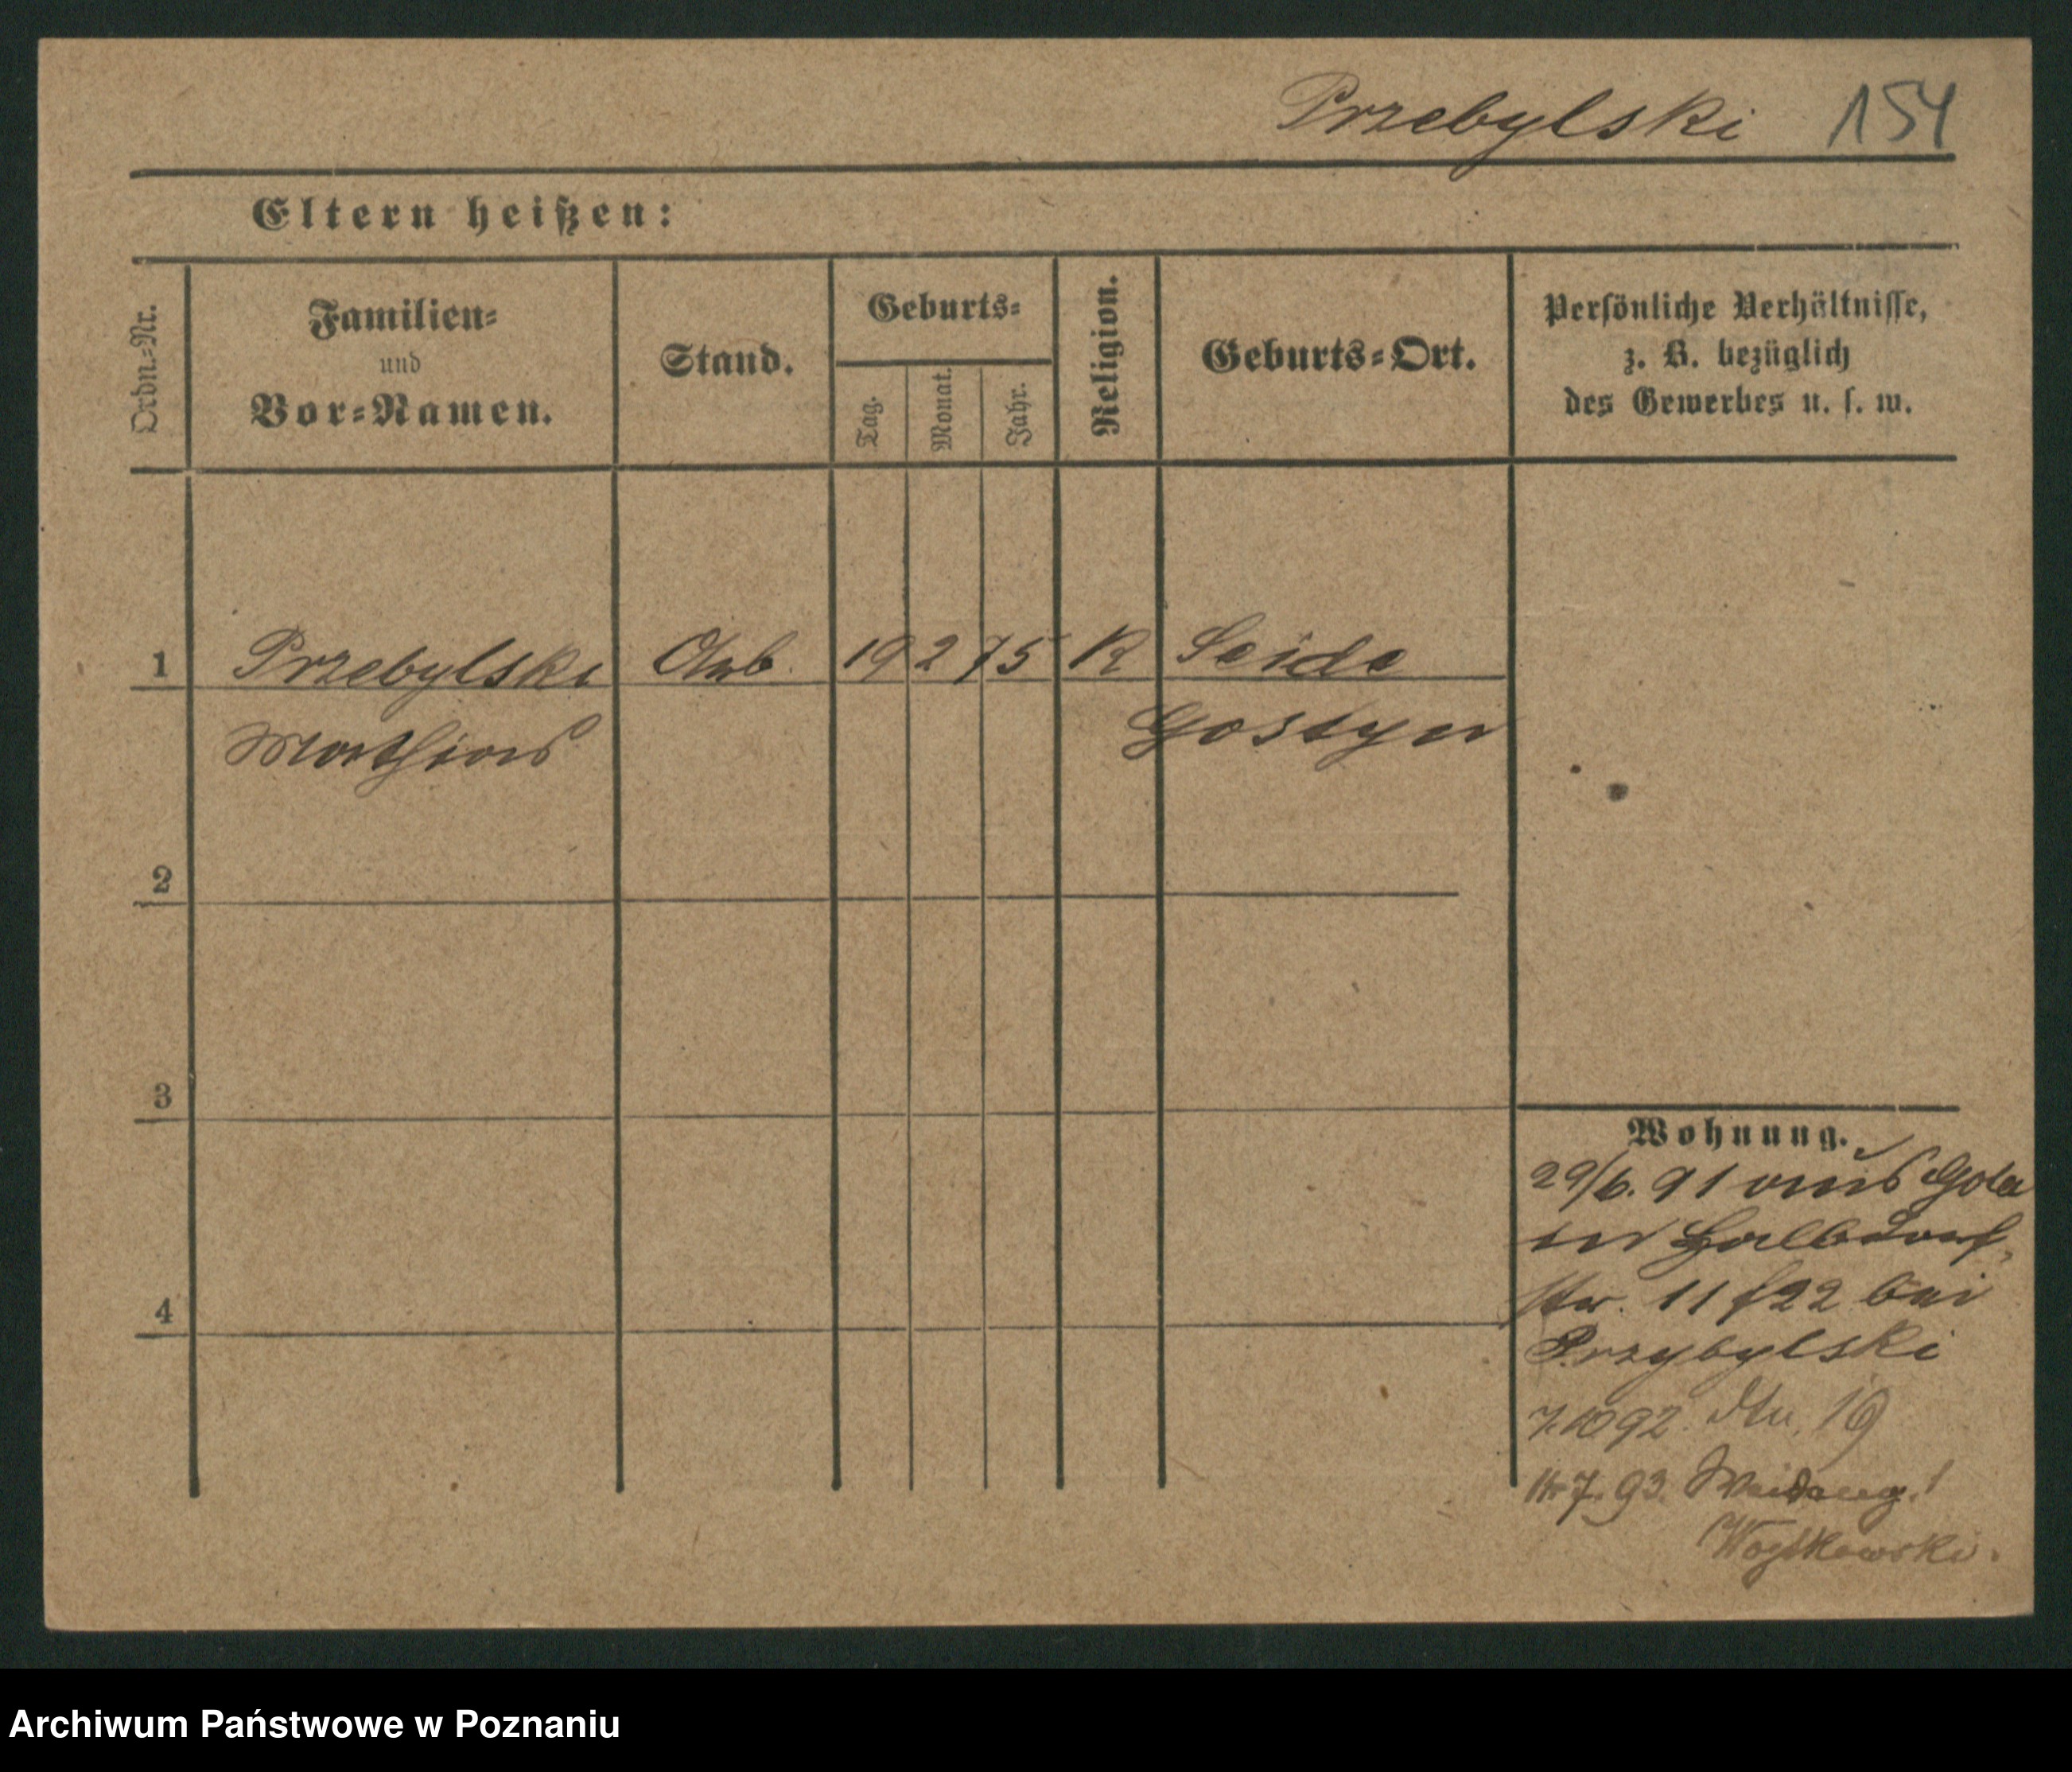 Przebylski 154
Eltern heißen:
Ordn.=Nr.
Familien=
und
Vor=Namen.
Stand.
Geburts=
Tag.
Monat.
Jahr.
Religion.
Geburts=Ort.
Persönliche Verhältnisse,
z. B. bezüglich
des Gewerbes u. s. w.
1 Przebylski Arb. 19 2 75 K Seide
Mathias Gostyn
2
3
4
Wohnung.
29/6. 91 aus Gola
in Halbdorf,
str. 11 f 22 bei
Przybylski
7.10 92. 19
7. 93.
Woytkowski.
Archiwum Państwowe w Poznaniu